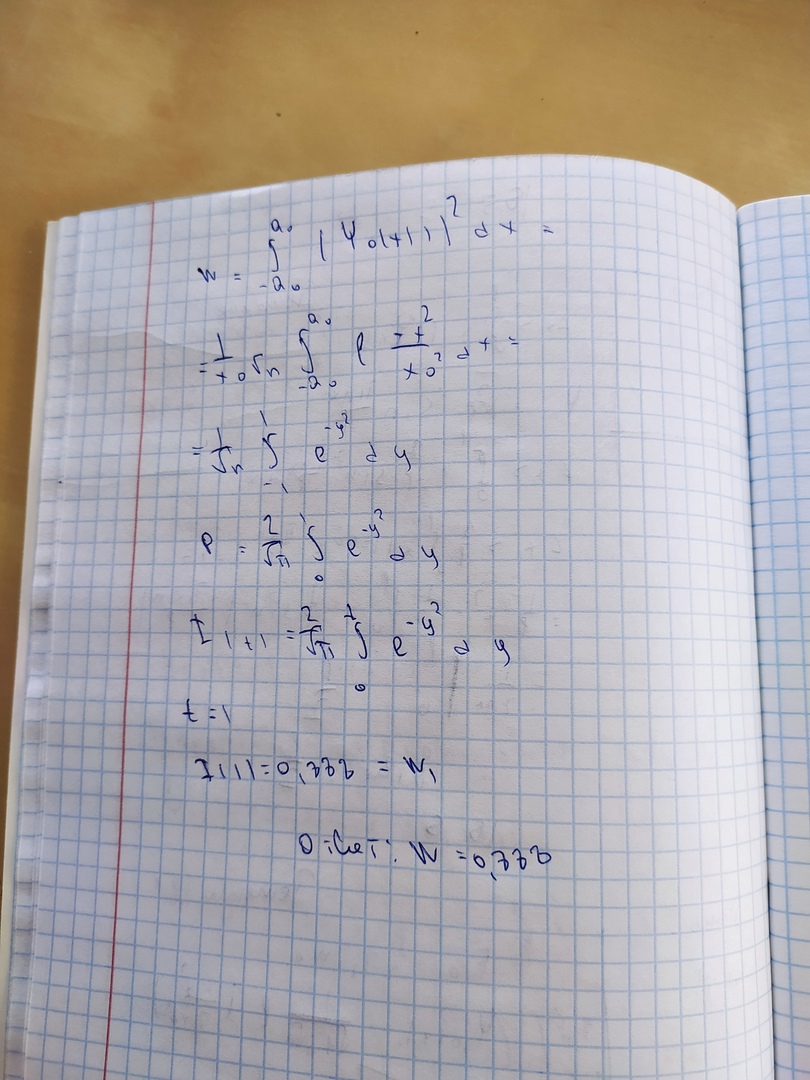 W = ∫_{-a₀}^{a₀} (Ψ₀(x))² dx =
= 1/(x₀√π) ∫_{-a₀}^{a₀} e^{-x²/x₀²} dx =
= 1/√π ∫_{-1}^{1} e^{-y²} dy
P = 2/√π ∫_{0}^{1} e^{-y²} dy
I(t) = 2/√π ∫_{0}^{t} e^{-y²} dy
t = 1
I(1) = 0,
Ответ: W = 0,